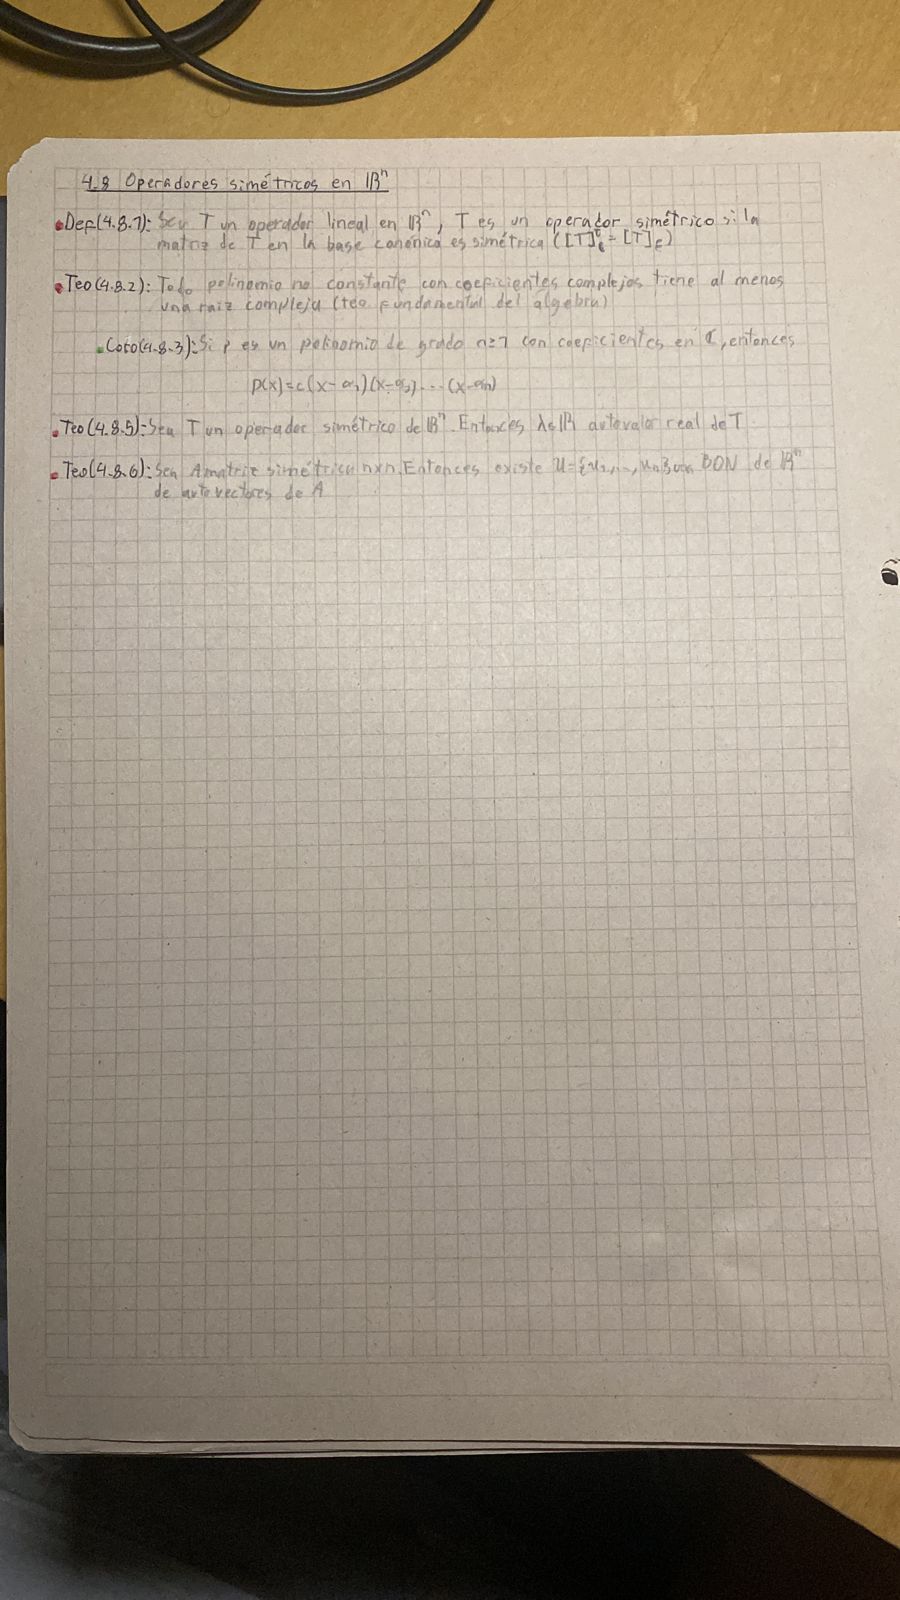 4.8 Operadores simétricos en ℝⁿ
Def(4.8.1): Sea T un operador lineal en ℝⁿ, T es un operador simétrico si la
matriz de T en la base canónica es simétrica ([T]ᵗ = [T]ε)
Teo(4.8.2): Todo polinomio no constante con coeficientes complejos tiene al menos
una raíz compleja (teo fundamental del álgebra)
Coro(4.8.3): Si p es un polinomio de grado n≥1 con coeficientes en ℂ, entonces
p(x)=c(x-α₁)(x-α₂)....(x-αn)
Teo(4.8.5): Sea T un operador simétrico de ℝⁿ. Entonces λ∈ℝ autovalor real de T
Teo(4.8.6): Sea A matriz simétrica nxn. Entonces existe U={u₁,...,un} una BON de ℝⁿ
de autovectores de A